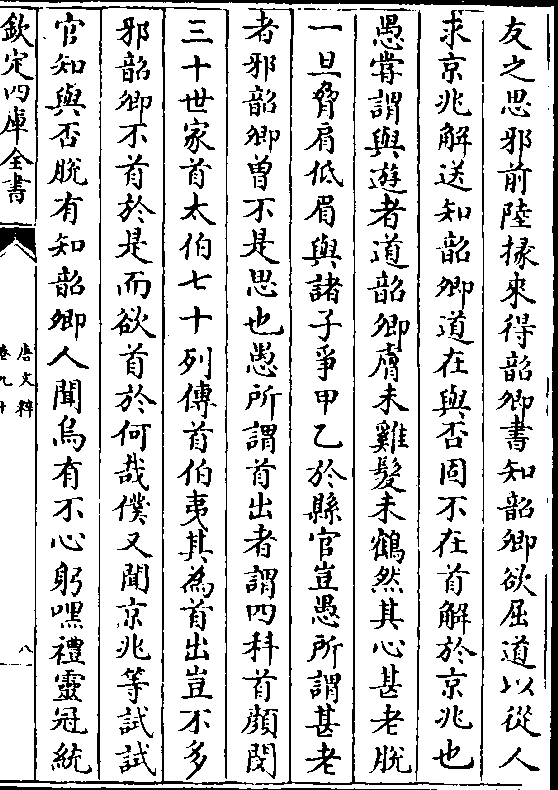 友之思邪前陸掾來得韶卿書知韶卿欲屈道以從人
求京兆解送知韶卿道在與否固不在首解於京兆也
愚嘗謂與遊者道韶卿膚未雞髮未鶴然其心甚老脫
一旦脅肩低眉與諸子爭甲乙於縣官豈愚所謂甚老
者邪韶卿曽不是思也愚所謂首出者謂四科首顔閔
三十世家首太伯七十列傳首伯夷其為首出豈不多
邪韶卿不首於是而欲首於何哉僕又聞京兆等試試
官知與否脫有知韶卿人聞烏有不心躬嘿禮靈冠統
欽定四庫全書
唐文粹
卷九十
八